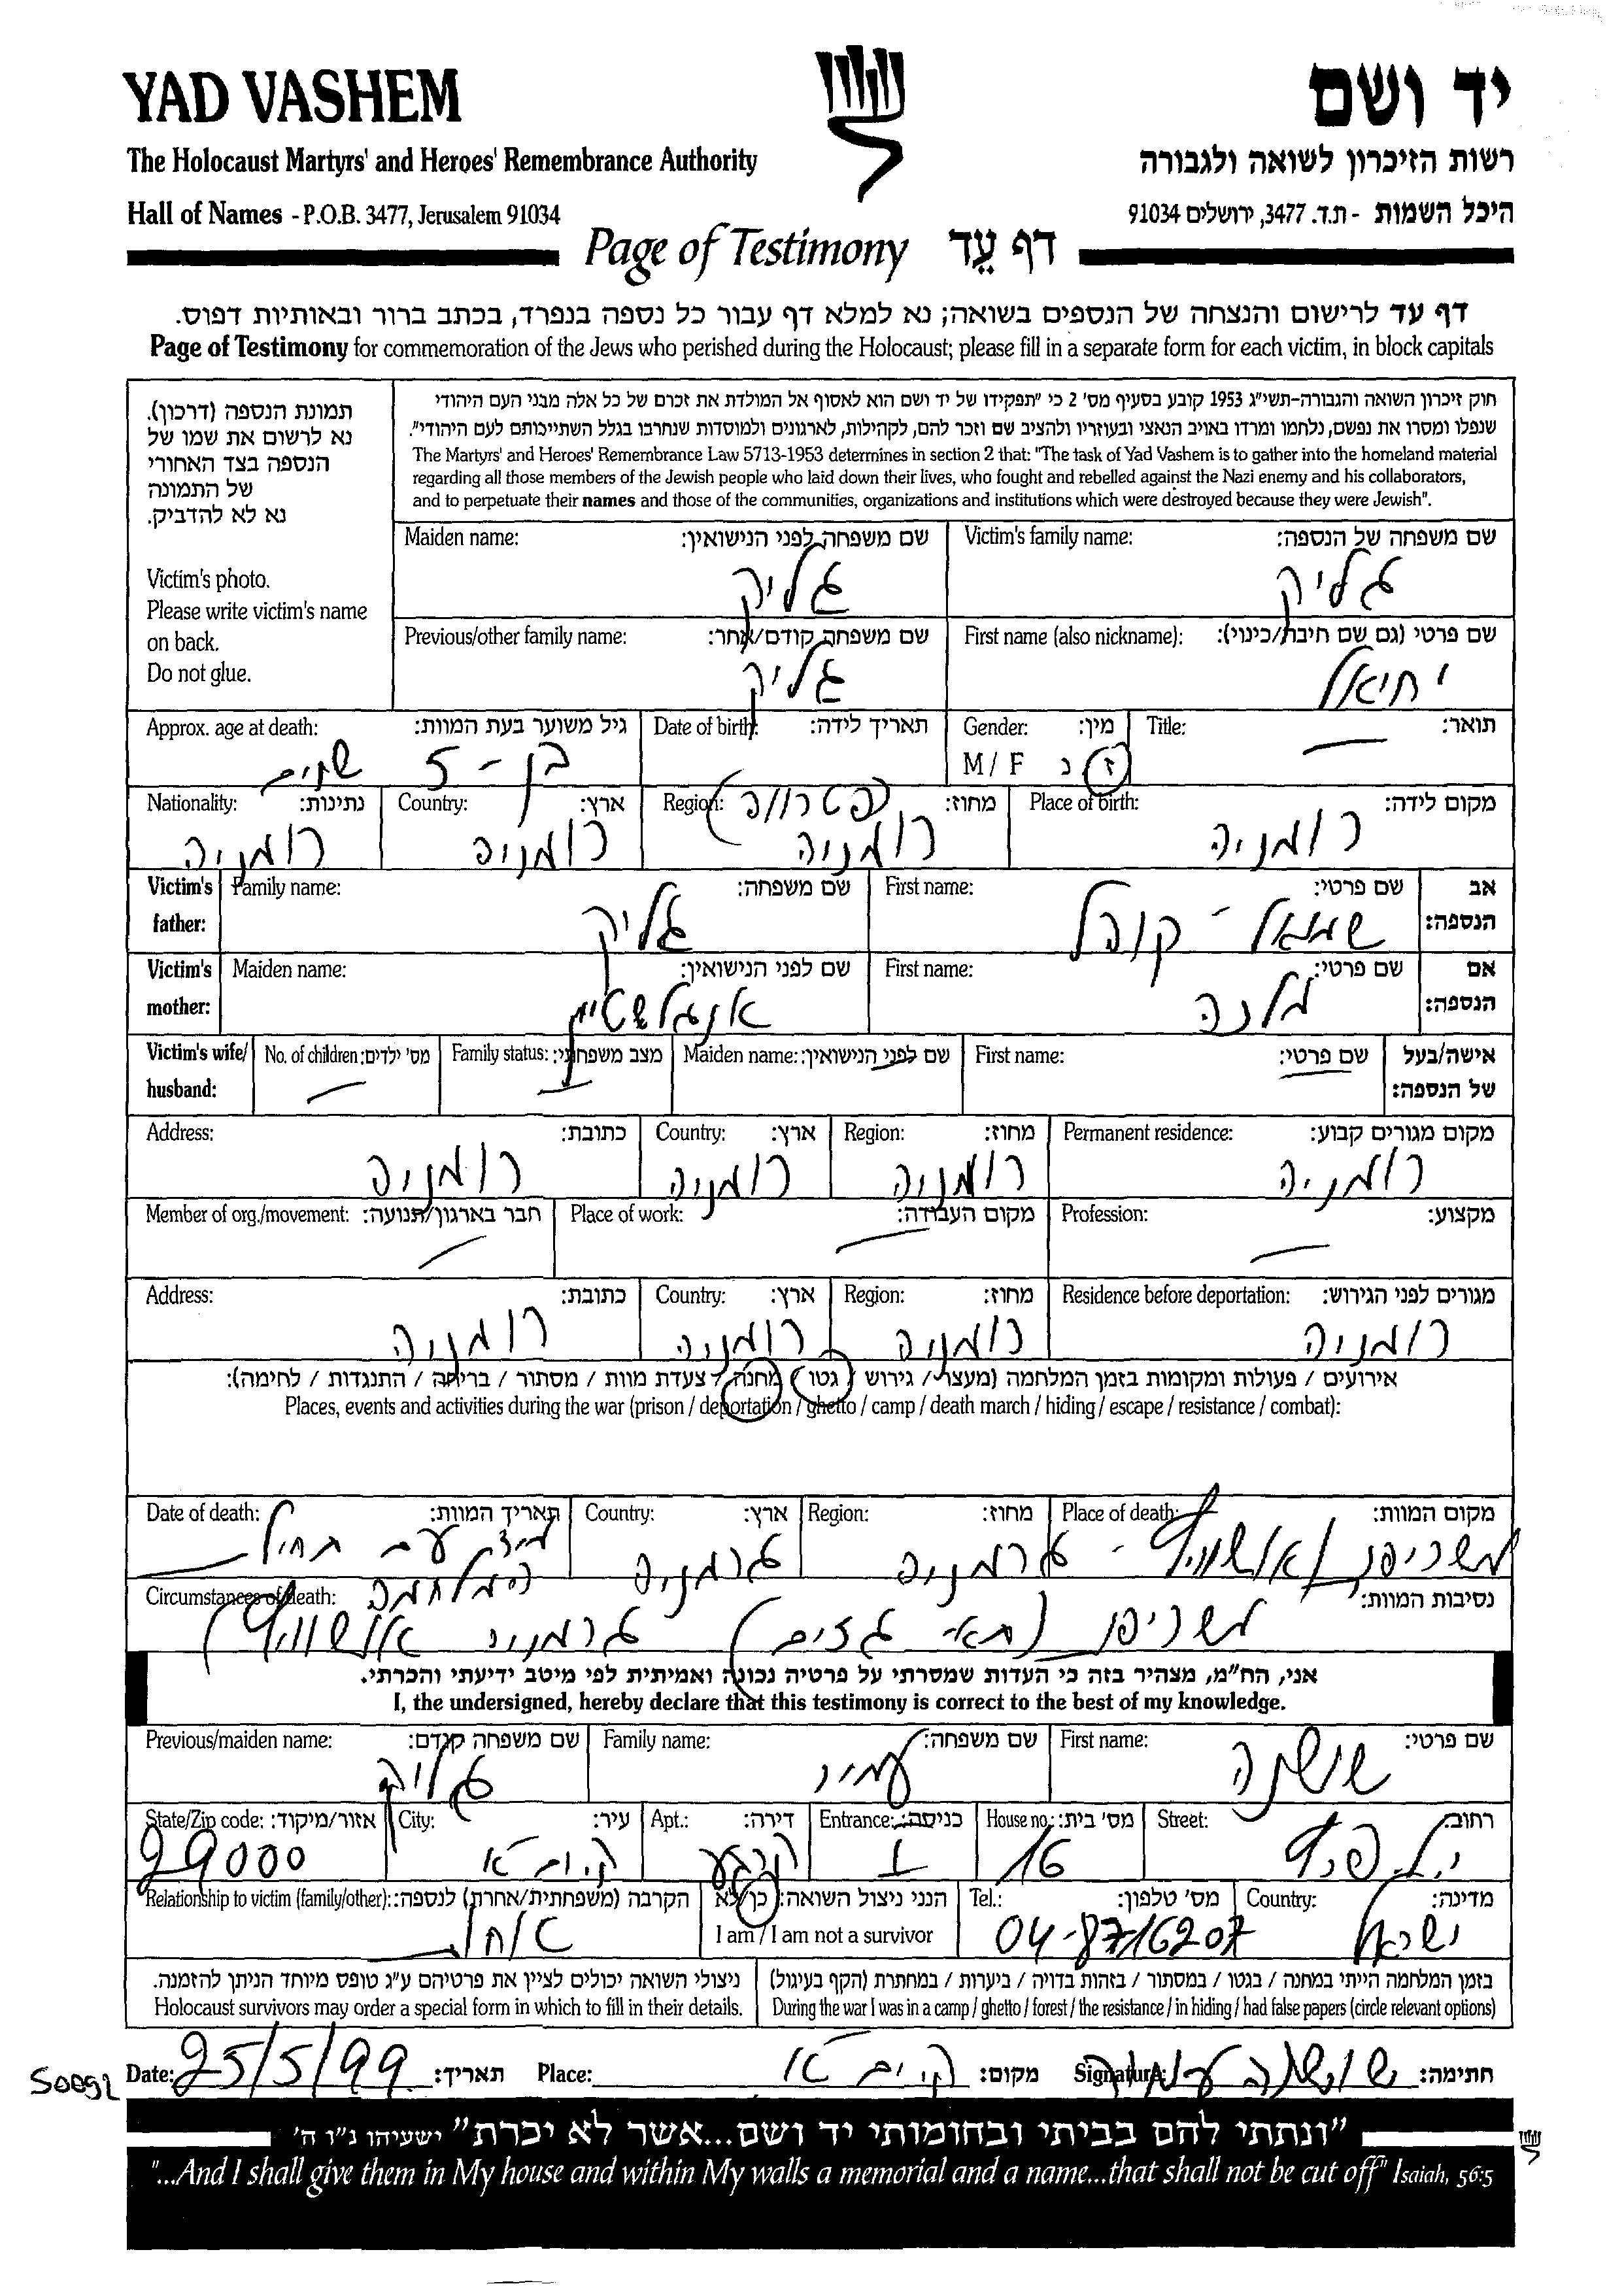 YAD VASHEM
יד ושם
The Holocaust Martyrs' and Heroes' Remembrance Authority
רשות הזיכרון לשואה ולגבורה
Hall of Names - P.O.B. 3477, Jerusalem 91034
היכל השמות - ת.ד. 3477, ירושלים 91034
Page of Testimony דף עֵד
דף עד לרישום והנצחה של הנספים בשואה; נא למלא דף עבור כל נספה בנפרד, בכתב ברור ובאותיות דפוס.
Page of Testimony for commemoration of the Jews who perished during the Holocaust; please fill in a separate form for each victim, in block capitals
תמונת הנספה (דרכון).
נא לרשום את שמו של
הנספה בצד האחורי
של התמונה
נא לא להדביק.
Victim's photo.
Please write victim's name
on back.
Do not glue.
חוק זיכרון השואה והגבורה-תשי"ג 1953 קובע בסעיף מס' 2 כי "תפקידו של יד ושם הוא לאסוף אל המולדת את זכרם של כל אלה מבני העם היהודי
שנפלו ומסרו את נפשם, נלחמו ומרדו באויב הנאצי ובעוזריו ולהציב שם וזכר להם, לקהילות, לארגונים ולמוסדות שנחרבו בגלל השתייכותם לעם היהודי".
The Martyrs' and Heroes' Remembrance Law 5713-1953 determines in section 2 that: "The task of Yad Vashem is to gather into the homeland material
regarding all those members of the Jewish people who laid down their lives, who fought and rebelled against the Nazi enemy and his collaborators,
and to perpetuate their names and those of the communities, organizations and institutions which were destroyed because they were Jewish".
Victim's family name: שם משפחה של הנספה:
גליק
Maiden name: שם משפחה לפני הנישואין:
גליק
First name (also nickname): שם פרטי (גם שם חיבה/כינוי):
יחיאל
Previous/other family name: שם משפחה קודם/אחר:
גליק
Title: תואר:
Gender: מין:
M / F ז נ
Date of birth: תאריך לידה:
Approx. age at death: גיל משוער בעת המוות:
בן - 5 שנים
Place of birth: מקום לידה:
רומניה
Region: מחוז:
(פטרווה)
רומניה
Country: ארץ:
רומניה
Nationality: נתינות:
רומניה
Victim's father: אב הנספה:
First name: שם פרטי:
שמואל - קופל
Family name: שם משפחה:
גליק
Victim's mother: אם הנספה:
First name: שם פרטי:
הלנה
Maiden name: שם לפני הנישואין:
אנגלשטיין
Victim's wife/ husband: אישה/בעל של הנספה:
First name: שם פרטי:
Maiden name: שם לפני הנישואין:
Family status: מצב משפחתי:
No. of children: מס' ילדים:
Permanent residence: מקום מגורים קבוע:
רומניה
Region: מחוז:
רומניה
Country: ארץ:
רומניה
Address: כתובת:
רומניה
Profession: מקצוע:
Place of work: מקום העבודה:
Member of org./movement: חבר בארגון/תנועה:
Residence before deportation: מגורים לפני הגירוש:
רומניה
Region: מחוז:
רומניה
Country: ארץ:
רומניה
Address: כתובת:
רומניה
אירועים / פעולות ומקומות בזמן המלחמה (מעצר / גירוש / גטו / מחנה / צעדת מוות / מסתור / בריחה / התנגדות / לחימה):
Places, events and activities during the war (prison / deportation / ghetto / camp / death march / hiding / escape / resistance / combat):
Place of death: מקום המוות:
משריפן אושוויץ -
Region: מחוז:
גרמניה
Country: ארץ:
גרמניה
Date of death: תאריך המוות:
מיד עם תחיל
המלחמה
Circumstances of death: נסיבות המוות:
משריפן (תאי גזים) גרמניה אושוויץ)
אני, הח"מ, מצהיר בזה כי העדות שמסרתי על פרטיה נכונה ואמיתית לפי מיטב ידיעתי והכרתי.
I, the undersigned, hereby declare that this testimony is correct to the best of my knowledge.
First name: שם פרטי:
שושנה
Family name: שם משפחה:
עמיר
Previous/maiden name: שם משפחה קודם:
גליק
Street: רחוב:
House no.: מס' בית:
16
Entrance: כניסה:
1
Apt.: דירה:
קרקע
City: עיר:
ק. ים א
State/Zip code: אזור/מיקוד:
29000
Country: מדינה:
ישראל
Tel.: מס' טלפון:
04-8716207
הנני ניצול השואה: כן/לא
I am / I am not a survivor
Relationship to victim (family/other): הקרבה (משפחתית/אחרת) לנספה:
אחות
בזמן המלחמה הייתי במחנה / בגטו / במסתור / בזהות בדויה / ביערות / במחתרת (הקף בעיגול)
During the war I was in a camp / ghetto / forest / the resistance / in hiding / had false papers (circle relevant options)
ניצולי השואה יכולים לציין את פרטיהם ע"ג טופס מיוחד הניתן להזמנה.
Holocaust survivors may order a special form in which to fill in their details.
Date: 25/5/99 תאריך: Place: ק. ים א מקום: Signature: שושנה עמיר חתימה:
"ונתתי להם בביתי ובחומותי יד ושם...אשר לא יכרת" ישעיהו נ"ו ה'
"...And I shall give them in My house and within My walls a memorial and a name...that shall not be cut off" Isaiah, 56:5